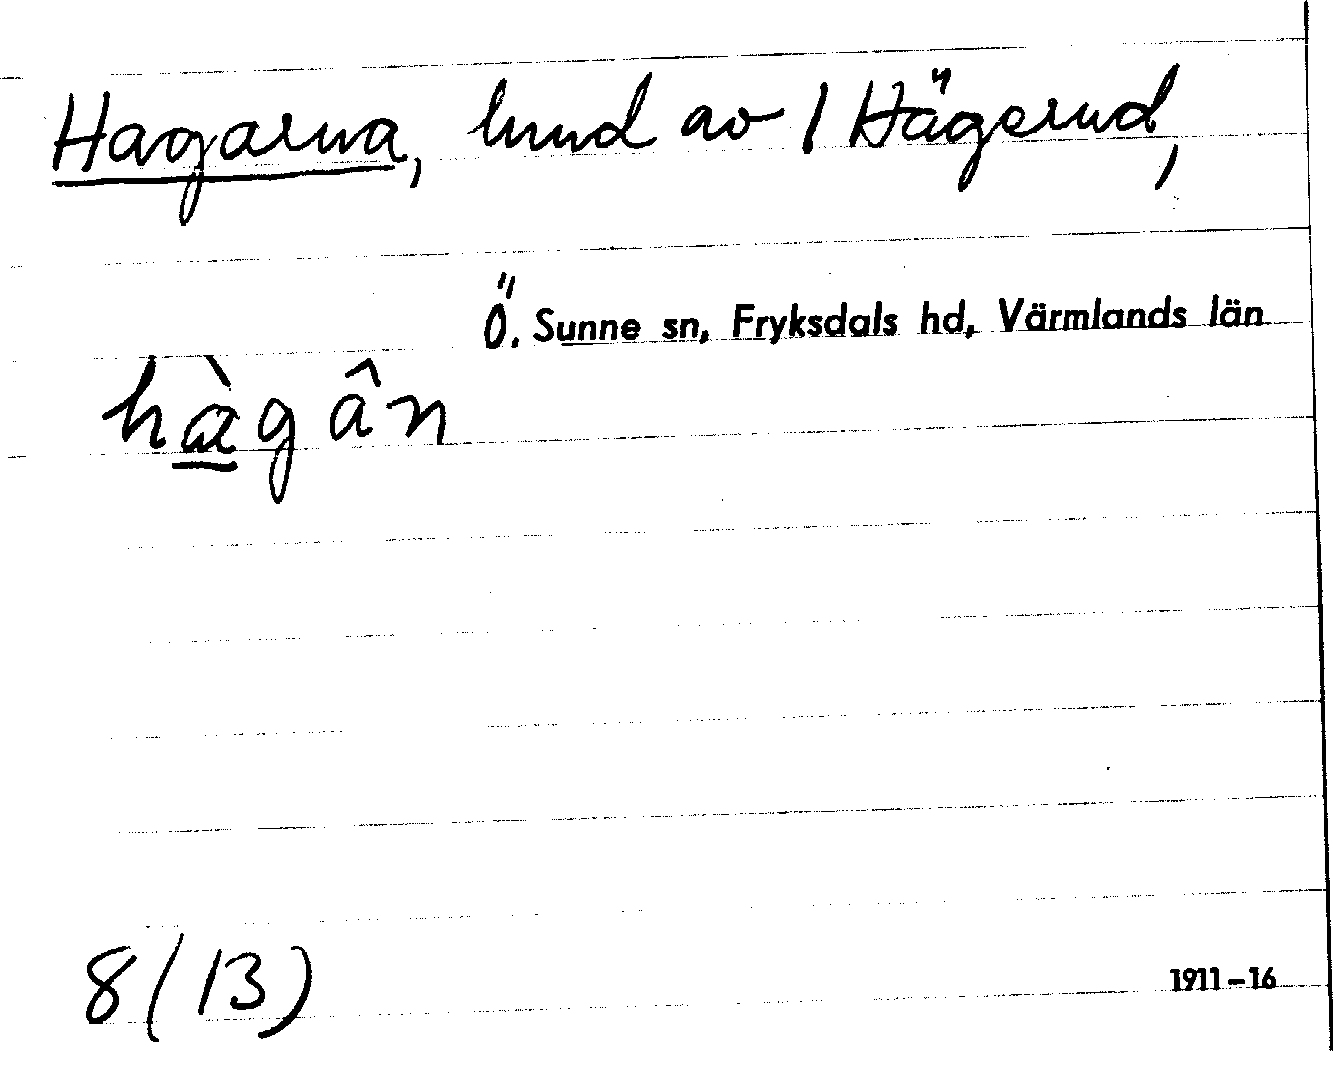 Hagarna, hmd av 1 Hägerud,
Ö. Sunne sn, Fryksdals hd, Värmlands län
hàgân
8 (13)
1911–16